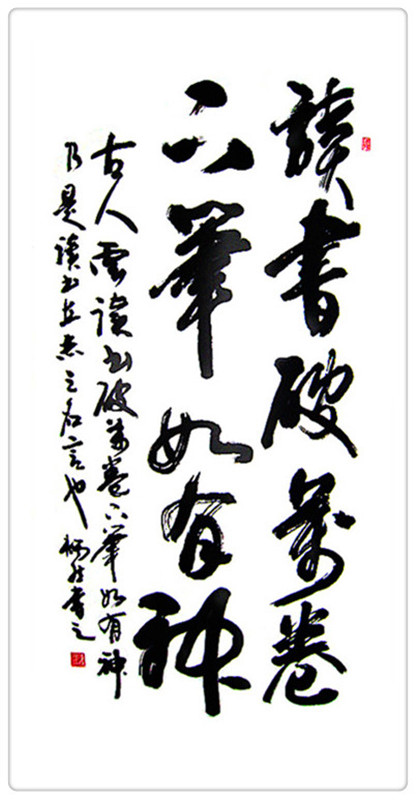 讀書破萬卷
下筆如有神
古人雲讀书破萬卷下筆如有神
乃是讀书立志之名言也 書之